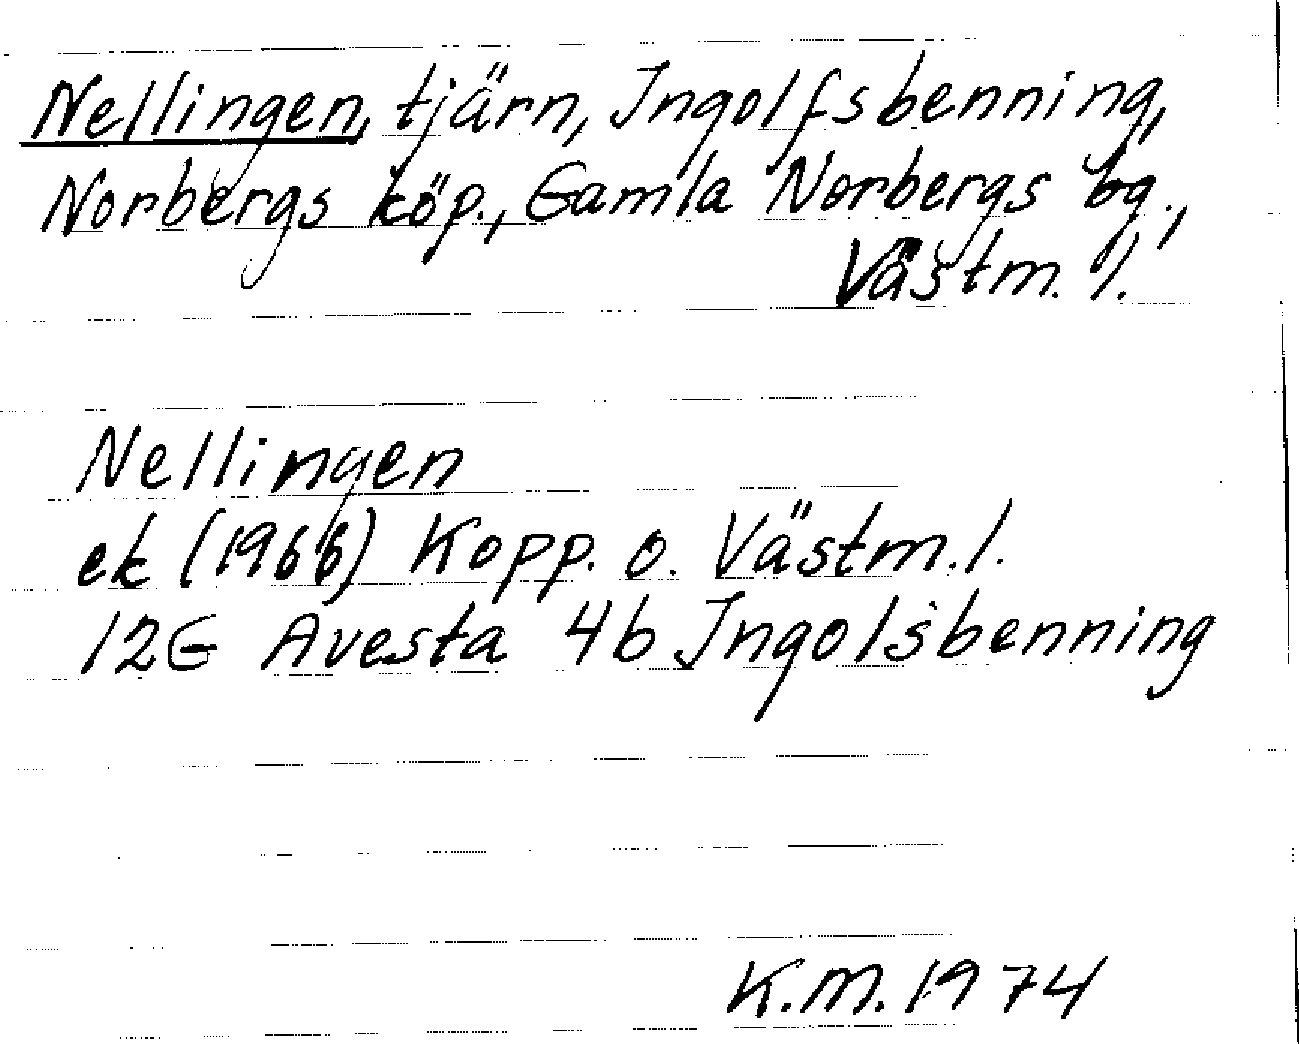 Nellingen, tjärn, Ingolfsbenning,
Norbergs köp., Gamla Norbergs bg.,
Västm. l.
Nellingen
ek (1966) Kopp. o. Västm. l.
12G Avesta 4b Ingolsbenning
K.M. 1974